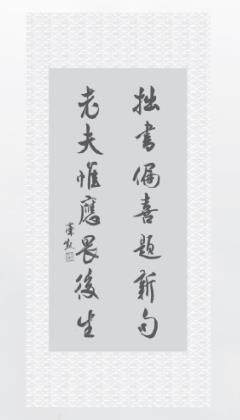 拙書偏喜題新句
老夫惟應畏後生